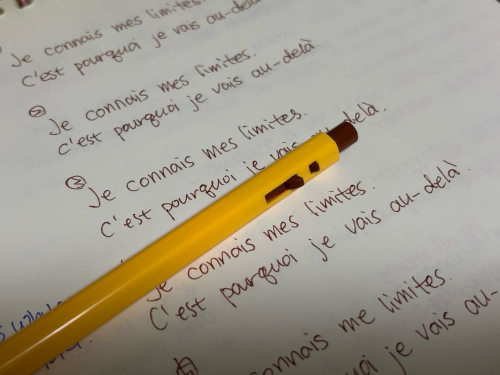 Je connais mes limites.
C'est pourquoi je vais au-delà
② Je connais mes limites.
C'est pourquoi je vais au-delà.
③ Je connais mes limites.
C'est pourquoi je vais au-delà.
Je connais mes limites.
C'est pourquoi je vais au-delà.
connais me limites.
je vais au-